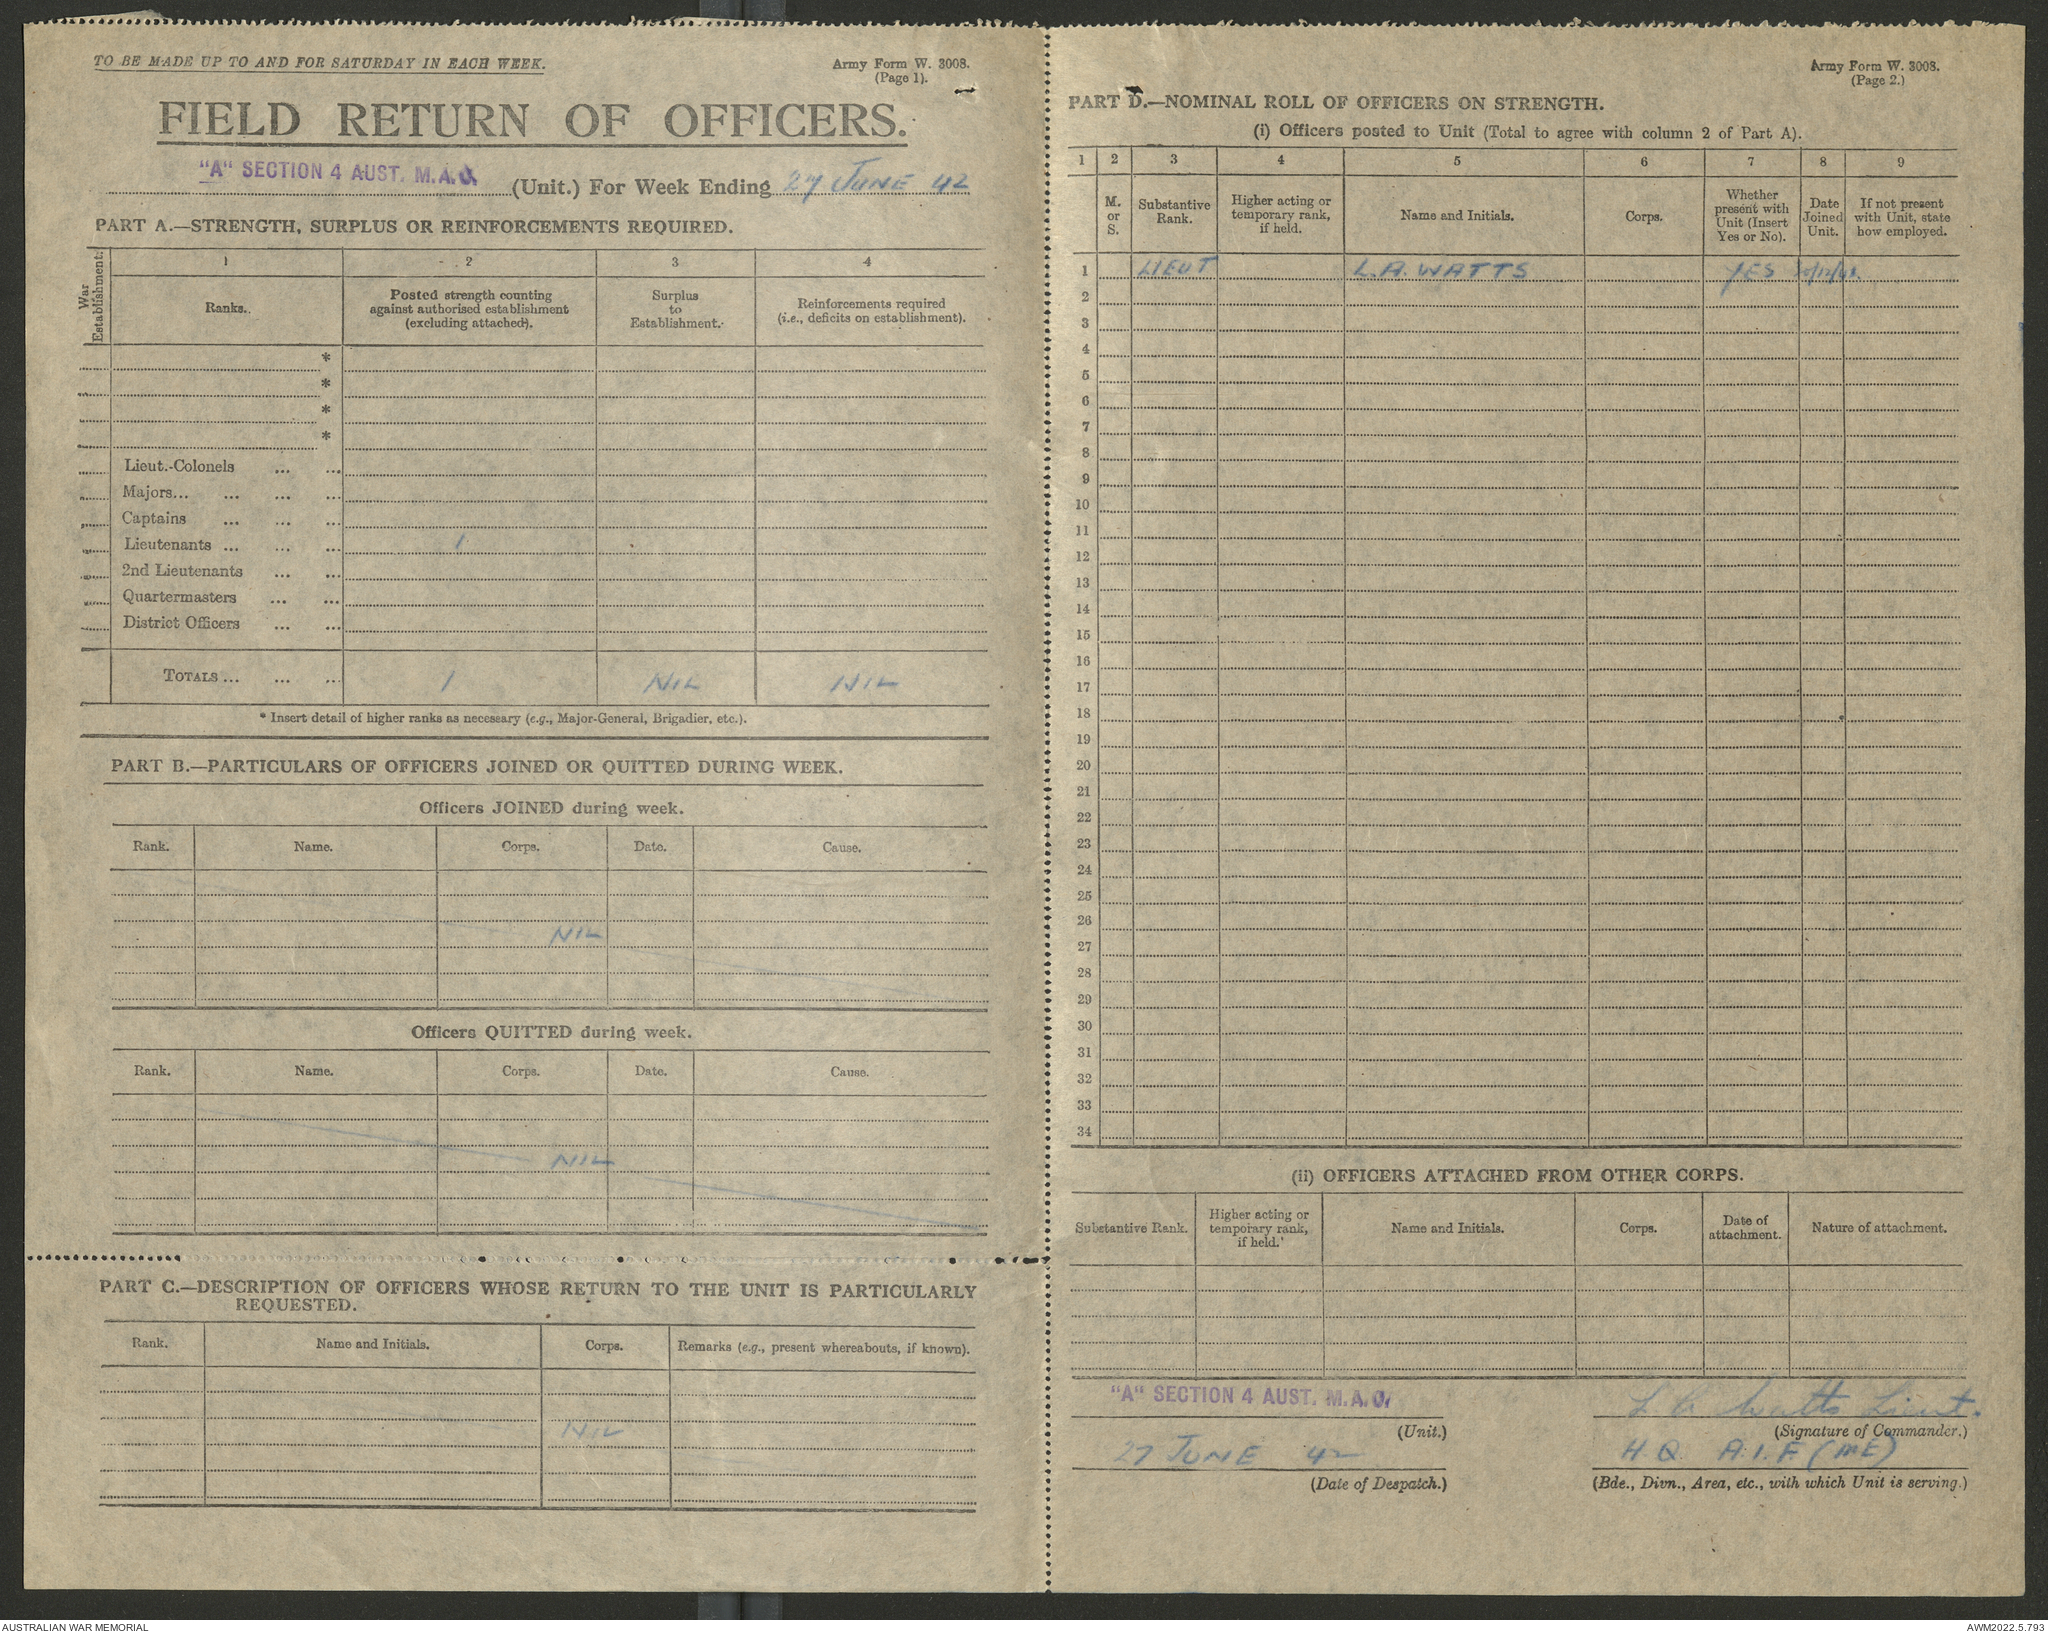 TO BE MADE UP TO AND FOR SATURDAY IN EACH WEEK.
Army Form W. 3008.
(Page 1).
FIELD RETURN OF OFFICERS.
"A" SECTION 4 AUST. M.A.C. (Unit.) For Week Ending 27 JUNE 42
PART A.—STRENGTH, SURPLUS OR REINFORCEMENTS REQUIRED.
War Establishment:
1 2 3 4
Ranks.
Posted strength counting against authorised establishment (excluding attached).
Surplus to Establishment.
Reinforcements required (i.e., deficits on establishment).
*
*
*
*
Lieut.-Colonels ... ...
Majors... ... ... ...
Captains ... ... ...
Lieutenants ... ... ... 1
2nd Lieutenants ... ...
Quartermasters ... ...
District Officers ... ...
TOTALS ... ... ... 1 NIL NIL
* Insert detail of higher ranks as necessary (e.g., Major-General, Brigadier, etc.).
PART B.—PARTICULARS OF OFFICERS JOINED OR QUITTED DURING WEEK.
Officers JOINED during week.
Rank. Name. Corps. Date. Cause.
NIL
Officers QUITTED during week.
Rank. Name. Corps. Date. Cause.
NIL
PART C.—DESCRIPTION OF OFFICERS WHOSE RETURN TO THE UNIT IS PARTICULARLY
REQUESTED.
Rank. Name and Initials. Corps. Remarks (e.g., present whereabouts, if known).
NIL
Army Form W. 3008.
(Page 2.)
PART D.—NOMINAL ROLL OF OFFICERS ON STRENGTH.
(i) Officers posted to Unit (Total to agree with column 2 of Part A).
1 2 3 4 5 6 7 8 9
M. or S.
Substantive Rank.
Higher acting or temporary rank, if held.
Name and Initials.
Corps.
Whether present with Unit (Insert Yes or No).
Date Joined Unit.
If not present with Unit, state how employed.
1 LIEUT L.A. WATTS YES
2
3
4
5
6
7
8
9
10
11
12
13
14
15
16
17
18
19
20
21
22
23
24
25
26
27
28
29
30
31
32
33
34
(ii) OFFICERS ATTACHED FROM OTHER CORPS.
Substantive Rank.
Higher acting or temporary rank, if held.
Name and Initials.
Corps.
Date of attachment.
Nature of attachment.
"A" SECTION 4 AUST. M.A.C.
(Unit.)
27 JUNE 42
(Date of Despatch.)
L A Watts Lieut.
(Signature of Commander.)
H.Q. A.I.F. (ME)
(Bde., Divn., Area, etc., with which Unit is serving.)
AUSTRALIAN WAR MEMORIAL
AWM2022.5.793